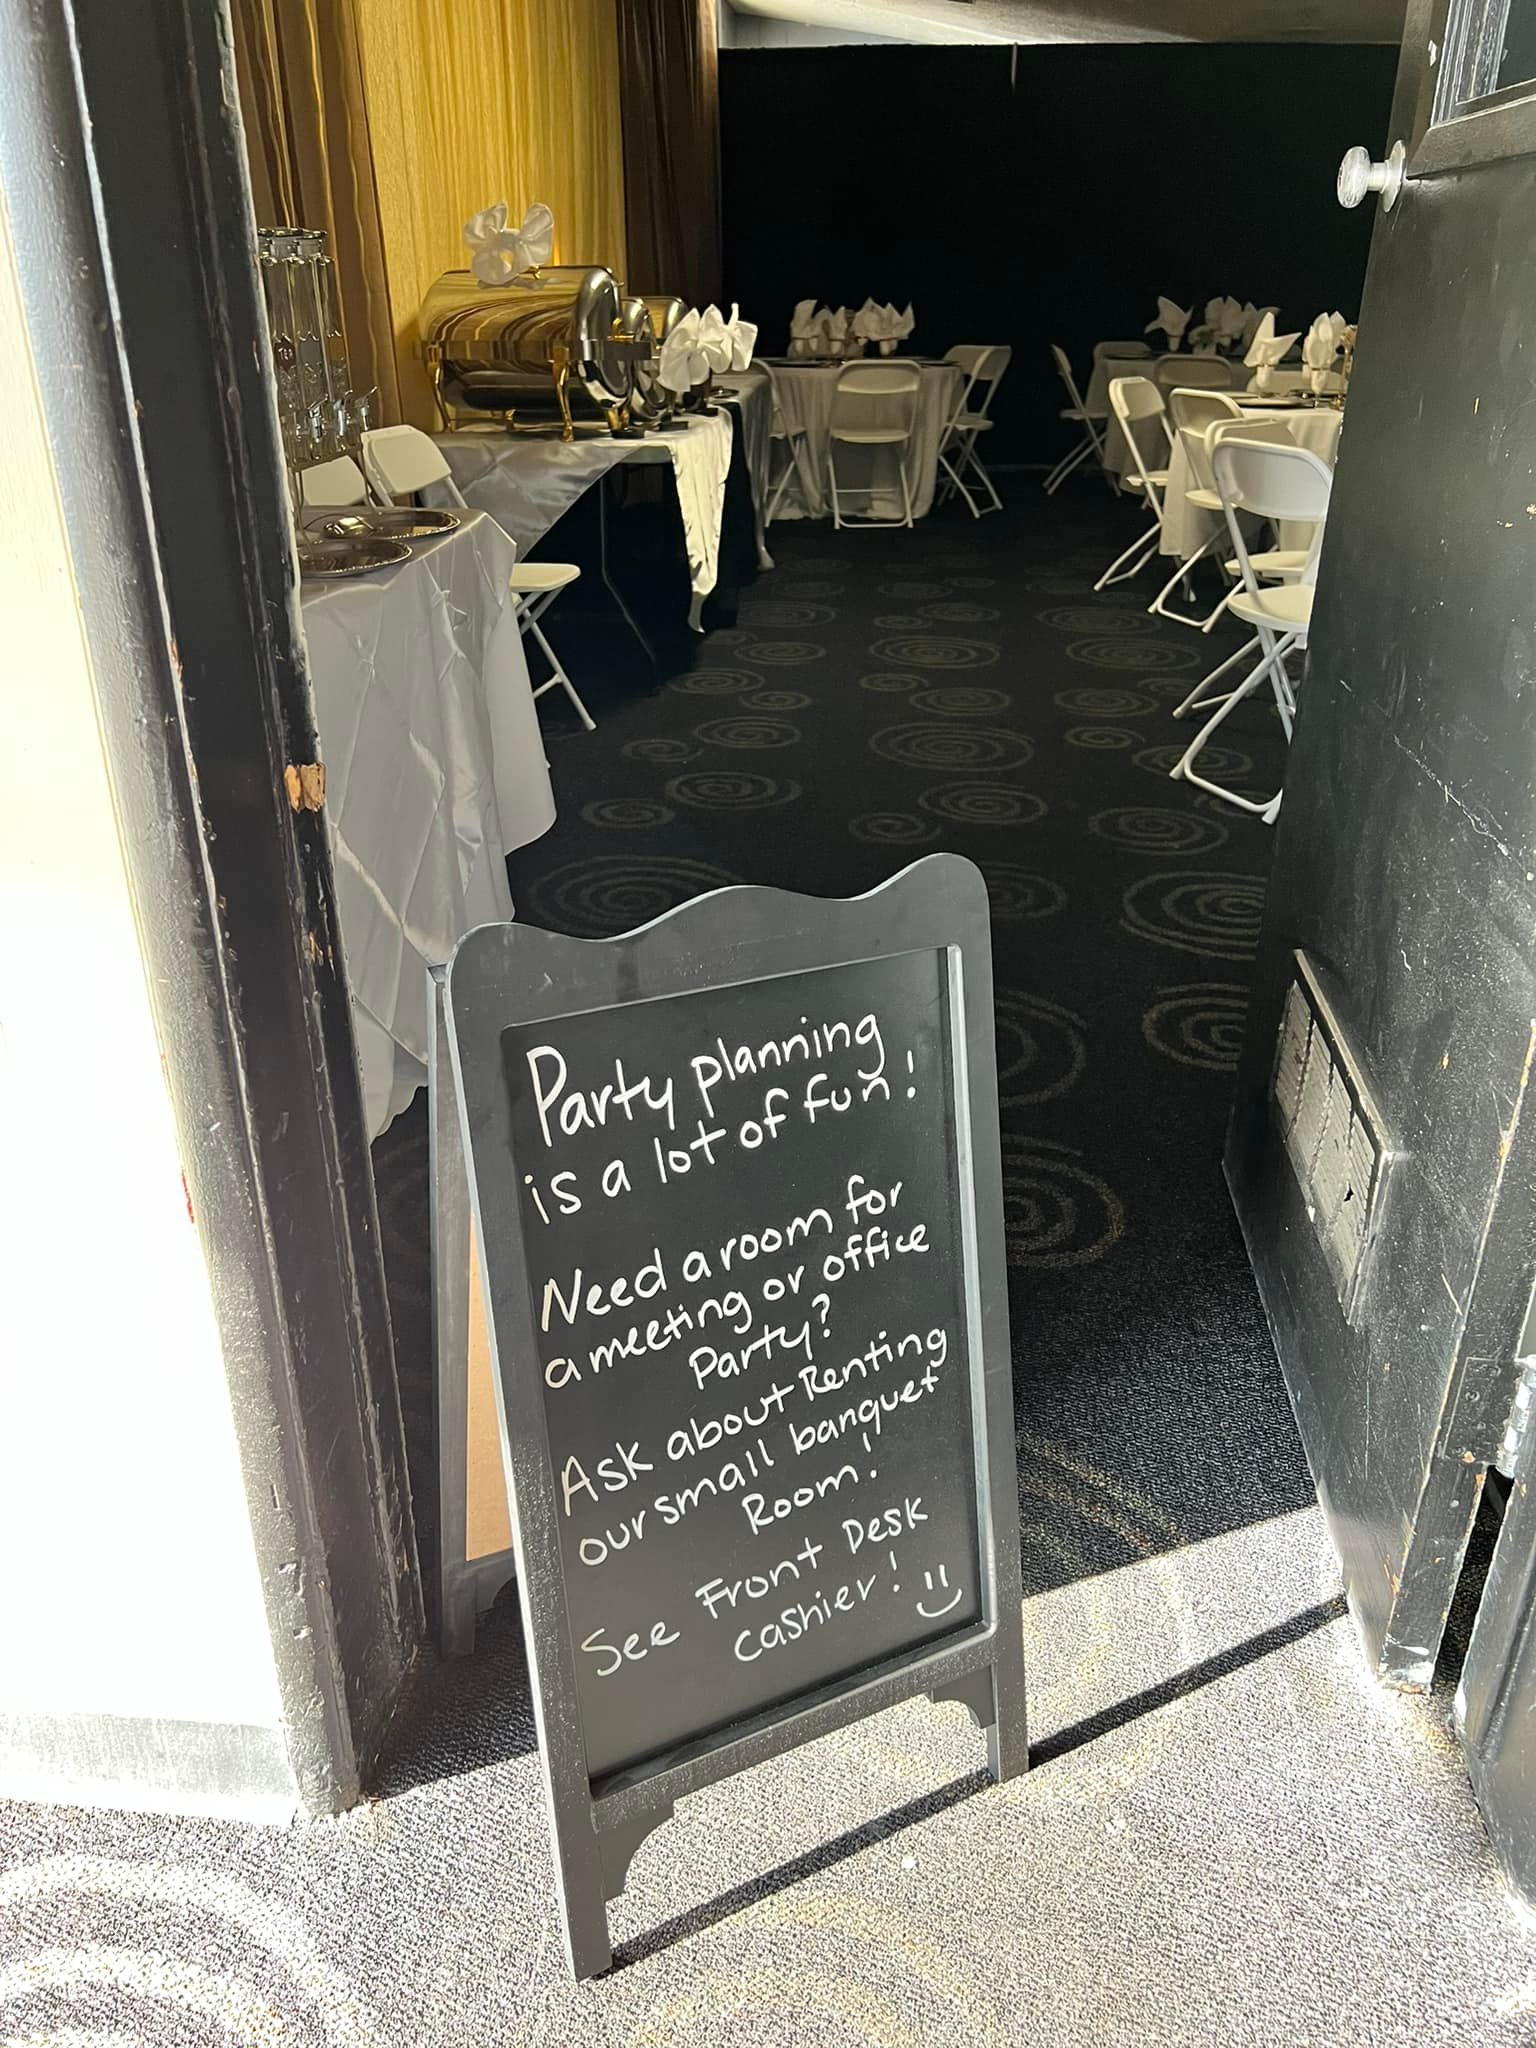 Party planning
is a lot of fun!
Need a room for
a meeting or office
Party?
Ask about Renting
our small banquet
Room!
See Front Desk
cashier!
TEA